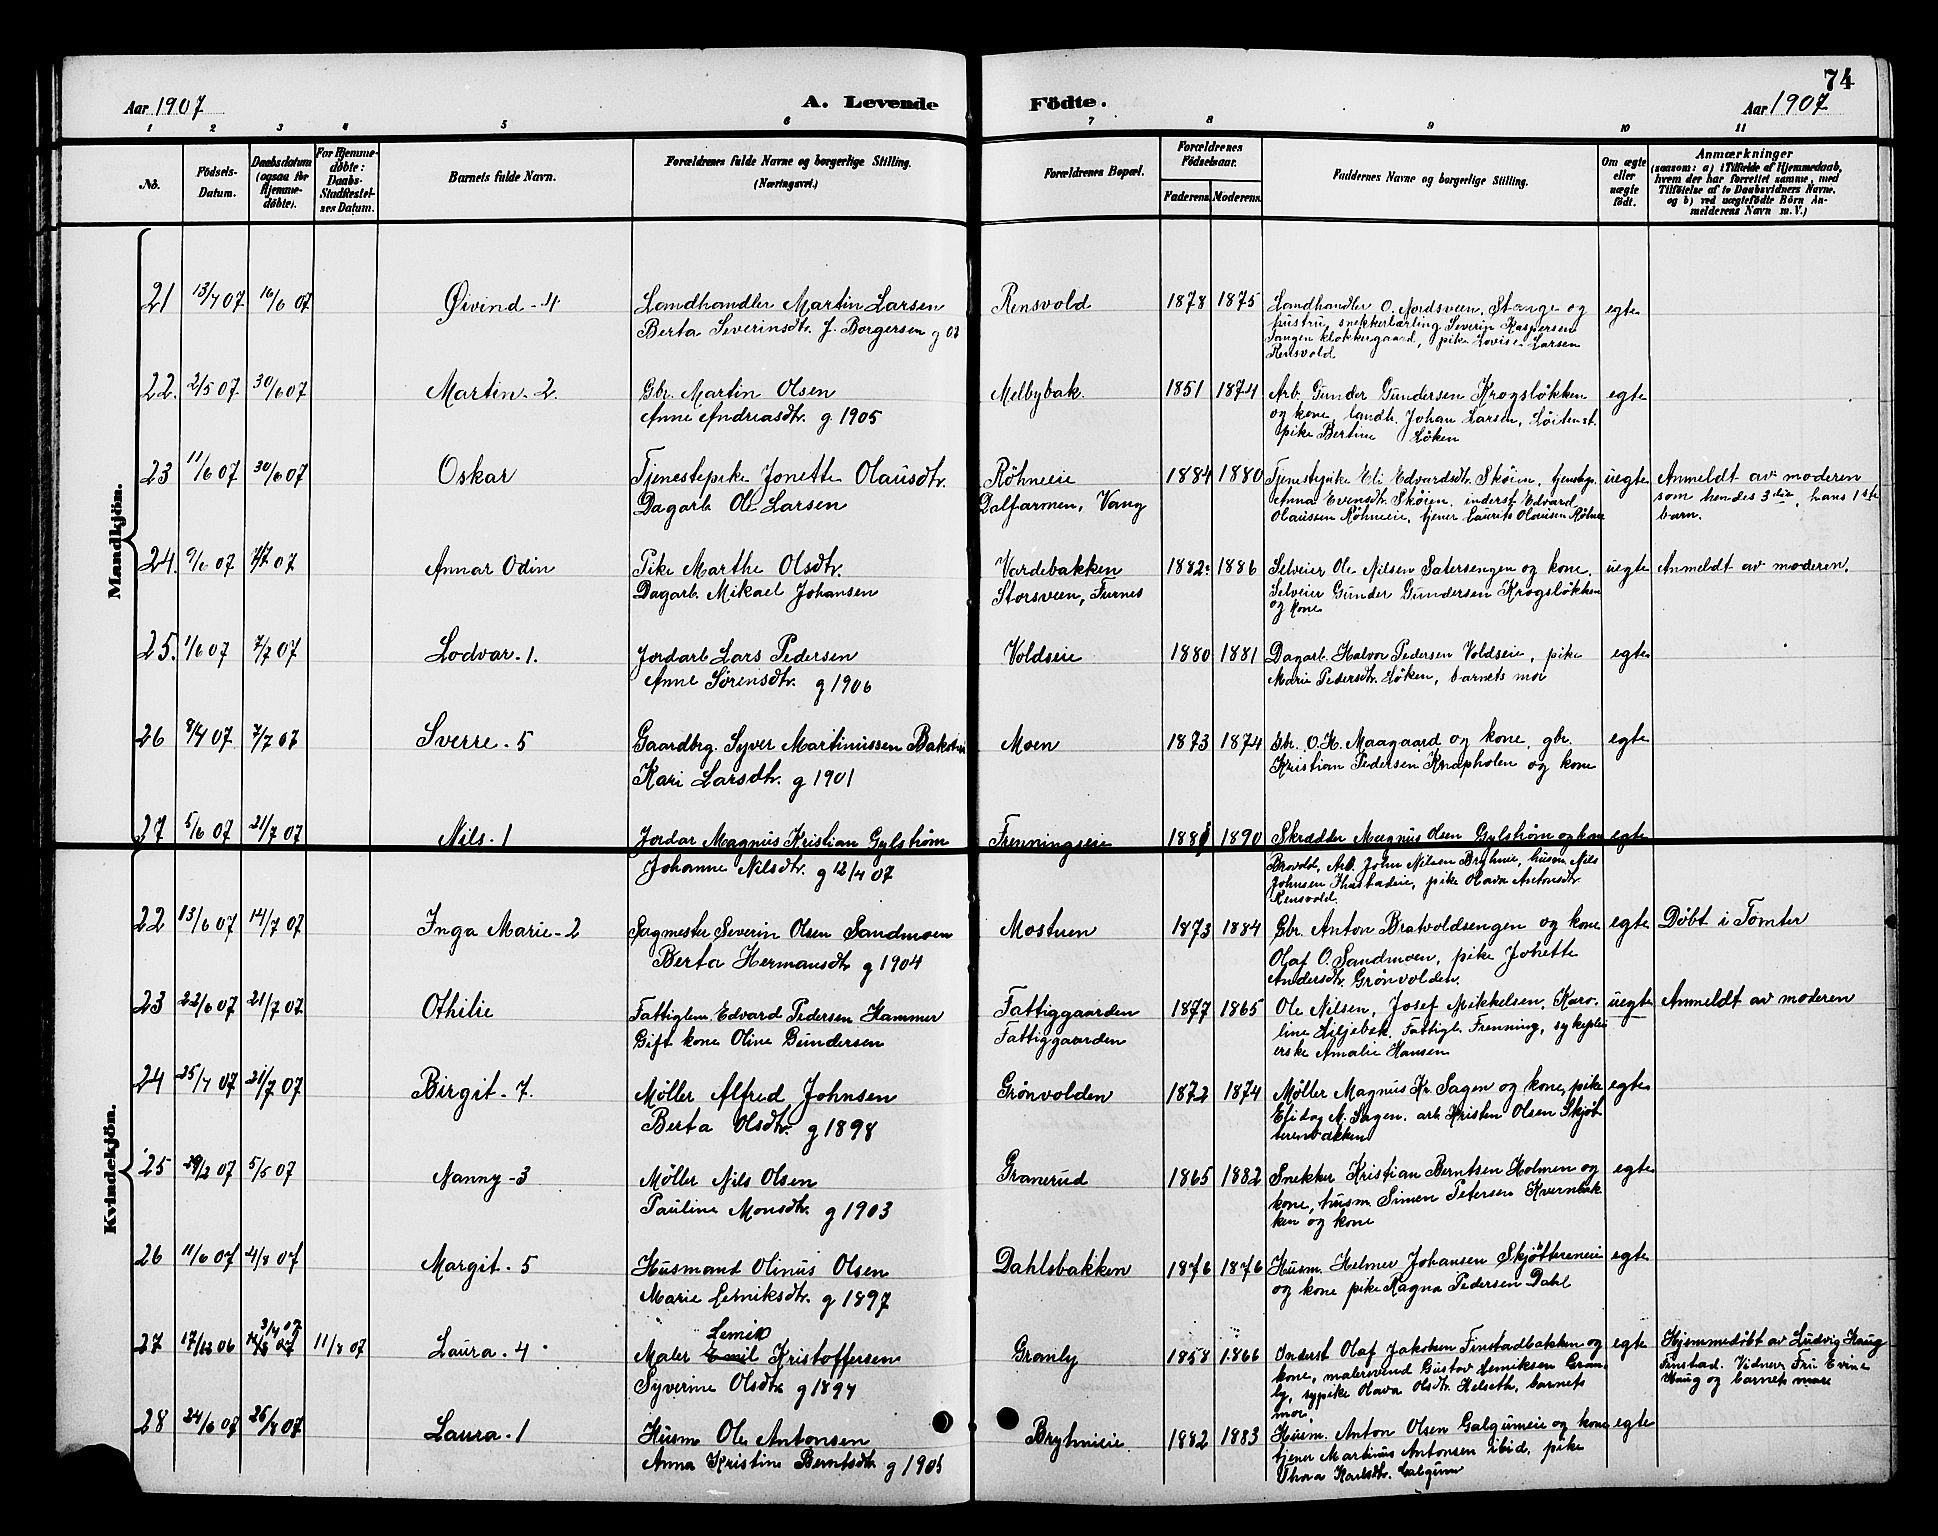 74
Aar 1907
A. Levende Födte.
Aar 1907
1 2 3 4 5 6 7 8 9 10 11
No.
Födsels-Datum.
Daabsdatum (ogsaa for Hjemme-döbte).
For Hjemme-döbte: Daabs-Stadfæstel-ses Datum.
Barnets fulde Navn.
Forældrenes fulde Navne og borgerlige Stilling.
(Næringsvei.)
Forældrenes Bopæl.
Forældrenes Födselsaar.
Faderens. Moderens.
Faddernes Navne og borgerlige Stilling.
Om ægte eller uægte födt.
Anmærkninger
(saasom: a) i Tilfælde af Hjemmedaab, hvem der har forrettet samme, med Tilföielse af to Daabsvidners Navne. og b) ved uægtefödte Börn An-melderens Navn m. V.)
Mandkjön.
21 13/4 07 16/6 07 Øivind - 4 Landhandler Martin Larsen Rensvold 1878 1875 Landhandler O. Nordsveen, Stange og egte
Berta Severinsdtr. f. Borgersen g 02 hustru, snekkerlærling Severin Kaspersen
Tangen klokkergaard, pike Lovise Larsen
Rensvold
22. 2/5 07 30/6 07 Martin - 2. Gbr. Martin Olsen Melbybak. 1851 1874 Arb. Gunder Gundersen Krogsløkken egte
Anne Andreasdtr. g. 1905 og kone, landh. Johan Larsen, Løitenst.
pike Bertine Løken
23 11/6 07 30/6 07 Oskar Tjenestepike Jonette Olausdtr. Røhneeie 1884 1880 Tjenestpike Eli Edvardsdtr. Skøien, tjenstp. uegte Anmeldt av moderen
Dagarb. Ole Larsen Dalfarmen, Vang Anna Evensdtr. Skøien, inderst Edvard som hendes 3die, hans 1ste
Olaussen Røhneeie, tjener Laurits Olausen Røhne barn.
24. 9/6 07 7/7 07 Annar Odin Pike Marthe Olsdtr. Vardebakken 1882 1886 Selveier Ole Nilsen Satersengen og kone, uegte Anmeldt av moderen.
Dagarb. Mikael Johansen Storsveen, Furnes Selveier Gunder Gundersen Krogsløkken
og kone
25. 1/6 07 7/7 07 Lodvar - 1. Jordarb. Lars Pedersen Voldseie 1880 1881 Dagarb. Halvor Pedersen Voldseie, pike egte
Anne Sørensdtr. g 1906 Marie Pedersdtr. Løken, barnets mor
26 8/4 07 7/7 07 Sverre - 5 Gaardbrg. Syver Martinussen Moen 1873 1874 Gbr. O. H. Maagaard og kone, gbr. egte
Kari Larsdtr. g 1901 Kristian Pedersen Knapholen og kone
27 5/6 07 21/7 07 Nils - 1 Jordar Magnus Kristian Gylstrøm Frenningseie 1890 Skrædder Magnus Olsen Gylstrøm og kone egte
Johanne Nilsdtr. g 12/4 07 Brovold, Arb. John Nilsen Bryhnie, husm. Nils
Johnsen, pike Olava Antonsdtr.
Rensvold.
Kvindekjön.
22 13/6 07 14/7 07 Inga Marie - 2 Sagmester Severin Olsen Sandmoen Mostuen 1873 1884 Gbr. Anton Bratvoldsengen og kone egte Døbt i Tømter
Berta Hermansdtr g 1904 Olaf O. Sandmoen, pike Johette
Andersdtr. Grønvolden.
23 22/6 07 21/7 07 Othilie Fattiglem Edvard Pedersen Hammer Fattiggaarden 1877 1865 Ole Nilsen, Josef Mikkelsen, Karo- uegte Anmeldt av moderen
Gift kone Oline Gundersen Fattiggaarden line Liljebak, Fattigb. Frenning, sykeplei
erske Amalie Hansen
24 25/4 07 21/7 07 Birgit - 7. Møller Alfred Johnsen Grønvolden 1872 1874 Møller Magnus Kr. Sagen og kone, pike egte
Berta Olsdtr. g 1898 M. Sagen. arb. Kristen Olsen Skjøt
terenbakken
25 07 5/5 07 Nanny - 3 Møller Nils Olsen Granerud 1865 1882 Snekker Kristian Berntsen Holmen og egte
Pauline Monsdtr. g 1903 kone, husm. Simen Petersen Kvernbak
ken og kone
26 11/6 07 4/8 07 Margit - 5 Husmand Olinus Olsen Dahlsbakken 1876 1876 Husm. Helmer Johansen Skjøttereneie egte
Marie Lemiksdtr. g 1897 og kone pike Ragna Pedersen Dahl
27 17/12 06 3/4 07 11/8 07 Laura - 4 Lemik
Maler Emil Kristoffersen Granly 1858 1866 Inderst Olaf Jakobsen Finstadbakken og egte Hjemmedøbt av Ludvig Haug
Syverine Olsdtr. g 1894 kone, malersvend Gustav Lemiksen Gran- Finstad. Vidner Fru Evine
ly, sypike Olava Olsdtr. Helseth, barnets Haug og barnets more
mor.
28 24/6 07 25/8 07 Laura - 1 Husm Ole Antonsen Bryhnieie 1882 1883 Husm. Anton Olsen Galgumeie og kone egte
Anna Kristine Berntsdtr g 1905 tjener Martinus Antonsen ibid, pike
Thora Karlsdtr. Galgum